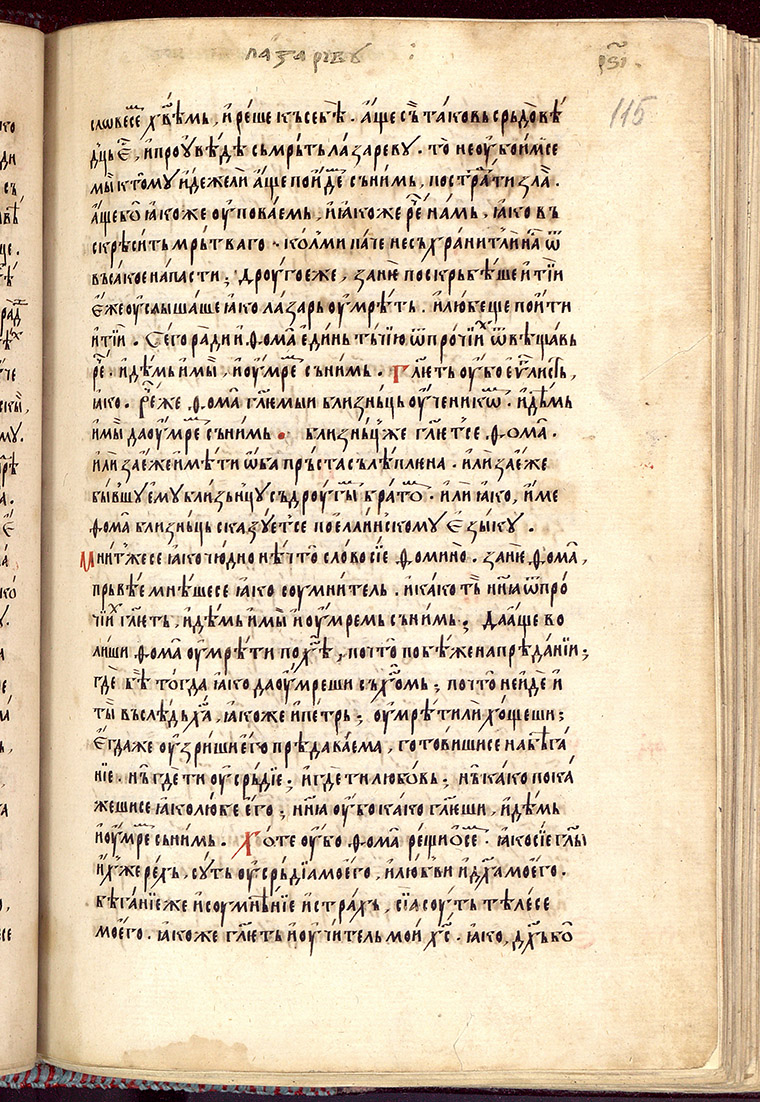 лазарꙋ :
рѕ҃і.
115
словесе хв҃ѣмь, и҆ рѣше къ себѣ . а҆ще съ таковь срьдовѣ
дць є҆с, и҆ проꙋвѣдѣ съмрьть лазаревꙋ . то не оу҆боимсе
мы к томꙋ и҆дежели а҆ще пои҆де съ нимь, пострати зла .
а҆ще бо ꙗкоже оу҆поваемь, и҆ ꙗкоже рⷱ҇е намь, ꙗко въ
скрѣсить мрьтваго . колми паче несъхранитли на ѿ
въсакое напасти ; дроугое же, зане поскрьбѣше и҆ тїи
є҆же оу҆слышаше ꙗко лазарь оу҆мрѣть . и҆ любеще поити
и҆ тїи . Сего ради и҆ фома єдинь тьчїю ѿ прочїих ѿвѣщавь
рⷱ҇е . и҆дѣмь и҆ мы, и҆ оу҆мрем съ нимь . Гл҃еть оу҆бо єѵ҃листь,
ꙗко . Рⷱ҇е же фома гл҃емыи близньць оу҆ченикѡм . и҆дѣмь
и҆ мы да оу҆мрем съ нимь . близньц же гл҃етсе фома .
и҆ли за є҆же и҆мѣти ѡба прьста сълѣплена . и҆ли за є҆же
бывшꙋ ємꙋ близньцꙋ съ дроугым братом . и҆ли ꙗко, и҆ме
фома близньць сказꙋетсе по є҆лаинскомꙋ є҆зыкꙋ .
Мнит же се ꙗко чюдно нѣчто слово сїе фомино . зане фома,
прьвѣе мнѣше се ꙗко соумнитель . и҆ како ть нн҃ꙗ ѿ про
чїих гл҃еть, и҆дѣмь и҆ мы и҆ оу҆мремь съ нимь ; Да а҆ще во
лиши фома оу҆мрѣти по хⷭ҇ѣ, почто побѣже на прѣданїи ;
где бѣ тогда ꙗко да оу҆мреши съ хⷭ҇омь ; почто не и҆де и҆
ты въслѣдь хⷭ҇а, ꙗкоже и҆ петрь ; оу҆мрѣти ли хощеши ;
Є҆гда же оу҆зриши є҆го прѣдаваема, готовиши се на бѣга
нїе . нь где ти оу҆срьдїе ; и҆ где ти любовь ; нь како пока
жеши се ꙗко любе є҆го ; нн҃ꙗ оу҆бо како гл҃еши, и҆дѣмь
и҆ оу҆мрем съ нимь . Хоте оу҆бо фома рещи ѡ се . ꙗко сїе гл҃ы
и҆х же рех, сꙋть оу҆срьдїа моего, и҆ любви и҆ дх҃а моего .
бѣганїе же и҆ соумнѣнїе и҆ страх, сїа соуть тѣлесе
моего . ꙗкоже гл҃еть и҆ оу҆читель мои хⷭ҇ . ꙗко, дх҃ь бо